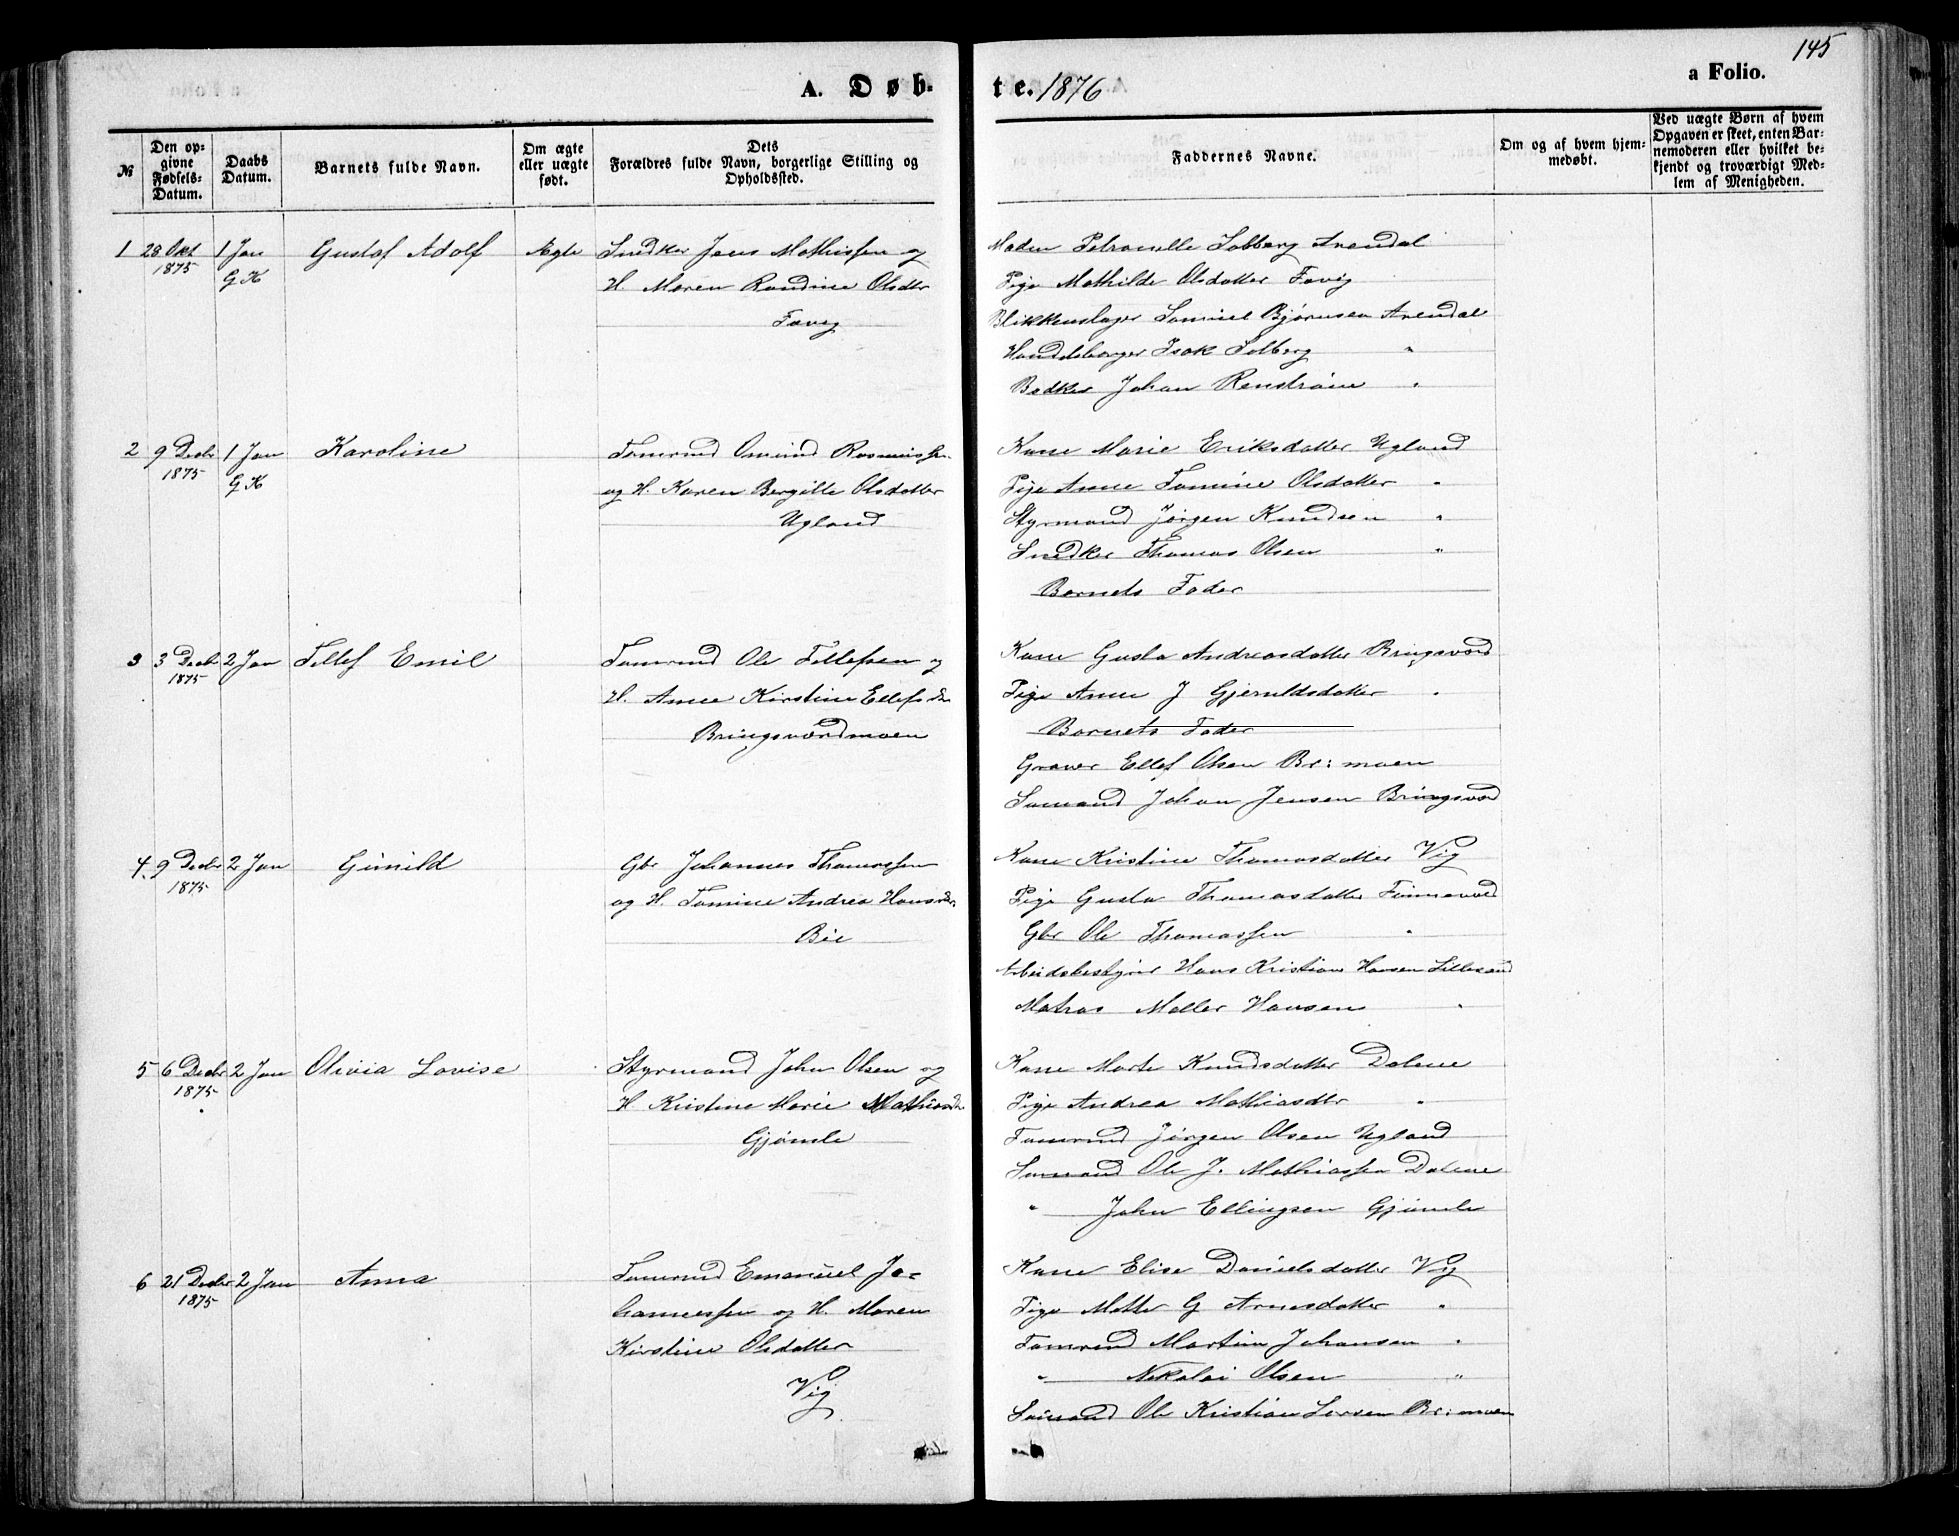 145
A. Døb-
te. 1876
a Folio.
№
Den op-
givne
Fødsels-
Datum.
Daabs
Datum.
Barnets fulde Navn.
Om ægte
eller uægte
født.
Dets
Forældres fulde Navn, borgerlige Stilling og
Opholdssted.
Faddernes Navne.
Om og af hvem hjem-
medøbt.
Ved uægte Børn af hvem
Opgaven er skeet, enten Bar-
nemoderen eller hvilket be-
kjendt og troværdigt Med-
lem af Menigheden.
1 28 Okt 1 Jan Gustaf Adolf Ægte Snedker Jens Mathissen og
1875 G K H. Maren Randine Olsdtr
Favig
Madm Petronelle Solberg Arendal
Pige Mathilde Olsdatter Favig
Blikkenslager Samuel Bjørnsen Arendal
Handelsborger Isak Solberg "
Bødker Johan Renstrøm "
2 9 Decbr 1 Jan Karoline Tømrmd Omund Rasmussen
1875 G K og H. Karen Bergitte Olsdatter
Ugland
Kone Marie Eriksdatter Ugland
Pige Anne Tomine Olsdatter "
Styrmand Jørgen Knudsen "
Snedker Thomas Olsen "
Barnets Fader
3 3 Decb 2 Jan Tellef Emil Tømrmd Ole Tellefsen og
1875 H. Anne Kirstine Ellefsdtr
Bringsværdmoen
Kone Gusta Andreasdatter Bringsværd
Pige Anne J Gjeruldsdatter "
Barnets Fader
Graver Ellef Olsen Br: moen
Sømand Johan Jensen Bringsvær
4. 9 Decbr 2 Jan Gunild Gbr Johannes Thomassen
1875 og H. Tomine Andrea Hansdtr.
Bie
Kone Kristine Thomasdatter Vig
Pige Gusta Thomasdatter
Gbr Ole Thomassen "
Arbeidsbestyrer Hans Kristian Hansen Lillesand
Matros Møller Hansen "
5 6 Decbr 2 Jan Olivia Lovise Styrmand John Olsen og
1875 H. Kristine Marie Mathiasdtr
Gjømle
Kone Marte Knudsdatter Dalene
Pige Andrea Mathiasdtr "
Tømrmd Jørgen Olsen Ugland
Sømand Ole J. Mathiassen Dalene
" John Ellingsen Gjømle
6 21 Decbr 2 Jan Anna Tømrmd Emanuel Jo-
1875 hannessen og H. Maren
Kirstine Olsdatter
Vig
Kone Elise Danielsdatter Vig
Pige Mette G Arnesdatter "
Tømrmd Martin Johansen "
" Nikolai Olsen "
Sømand Ole Kristian Larsen Br: moen